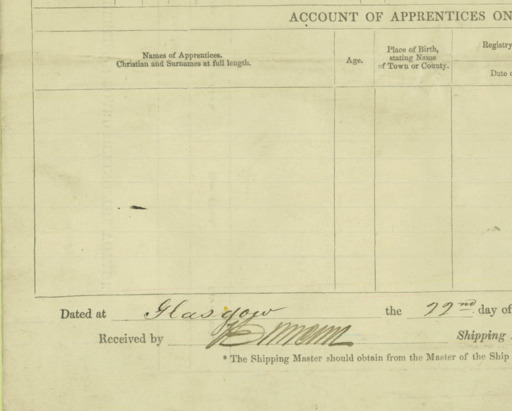 ACCOUNT OF APPRENTICES ON
Names of Apprentices.
Christian and Surnames at full length.
Age.
Place of Birth,
stating Name
of Town or County.
Registry
Date
Dated at Glasgow the 22nd day of
Received by Shipping
* The Shipping Master should obtain from the Master of the Ship